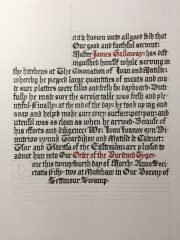 it be known unto all good folk that
Our good and faithful servent:
Master James Galloway has dis-
tinguished himselfe while serving in
the kitchens at The Coronation of Ivan and Matilde:
whereby he peyled large quantities of meats and ma
sure platters were filled and fresh for dayboard: Duti-
fully he made sure the service table was fresh and ple-
ntiful: Finally at the end of the day he took up rag and
soap and helped make sure every surface: pot: pan: and
utensil was as clean as when he arrived: Because of
his efforts and diligence: We: Ivan
and Matilde
Tsar and Tsaritsa of the Eastrealm are pleased to
admit him into Our Order of the Burdened Tyger:
one this twenty fourth day of March: Anno Soci-
etatis fifty-two at Mudthaw in Our Barony of
Settmour Swamp: